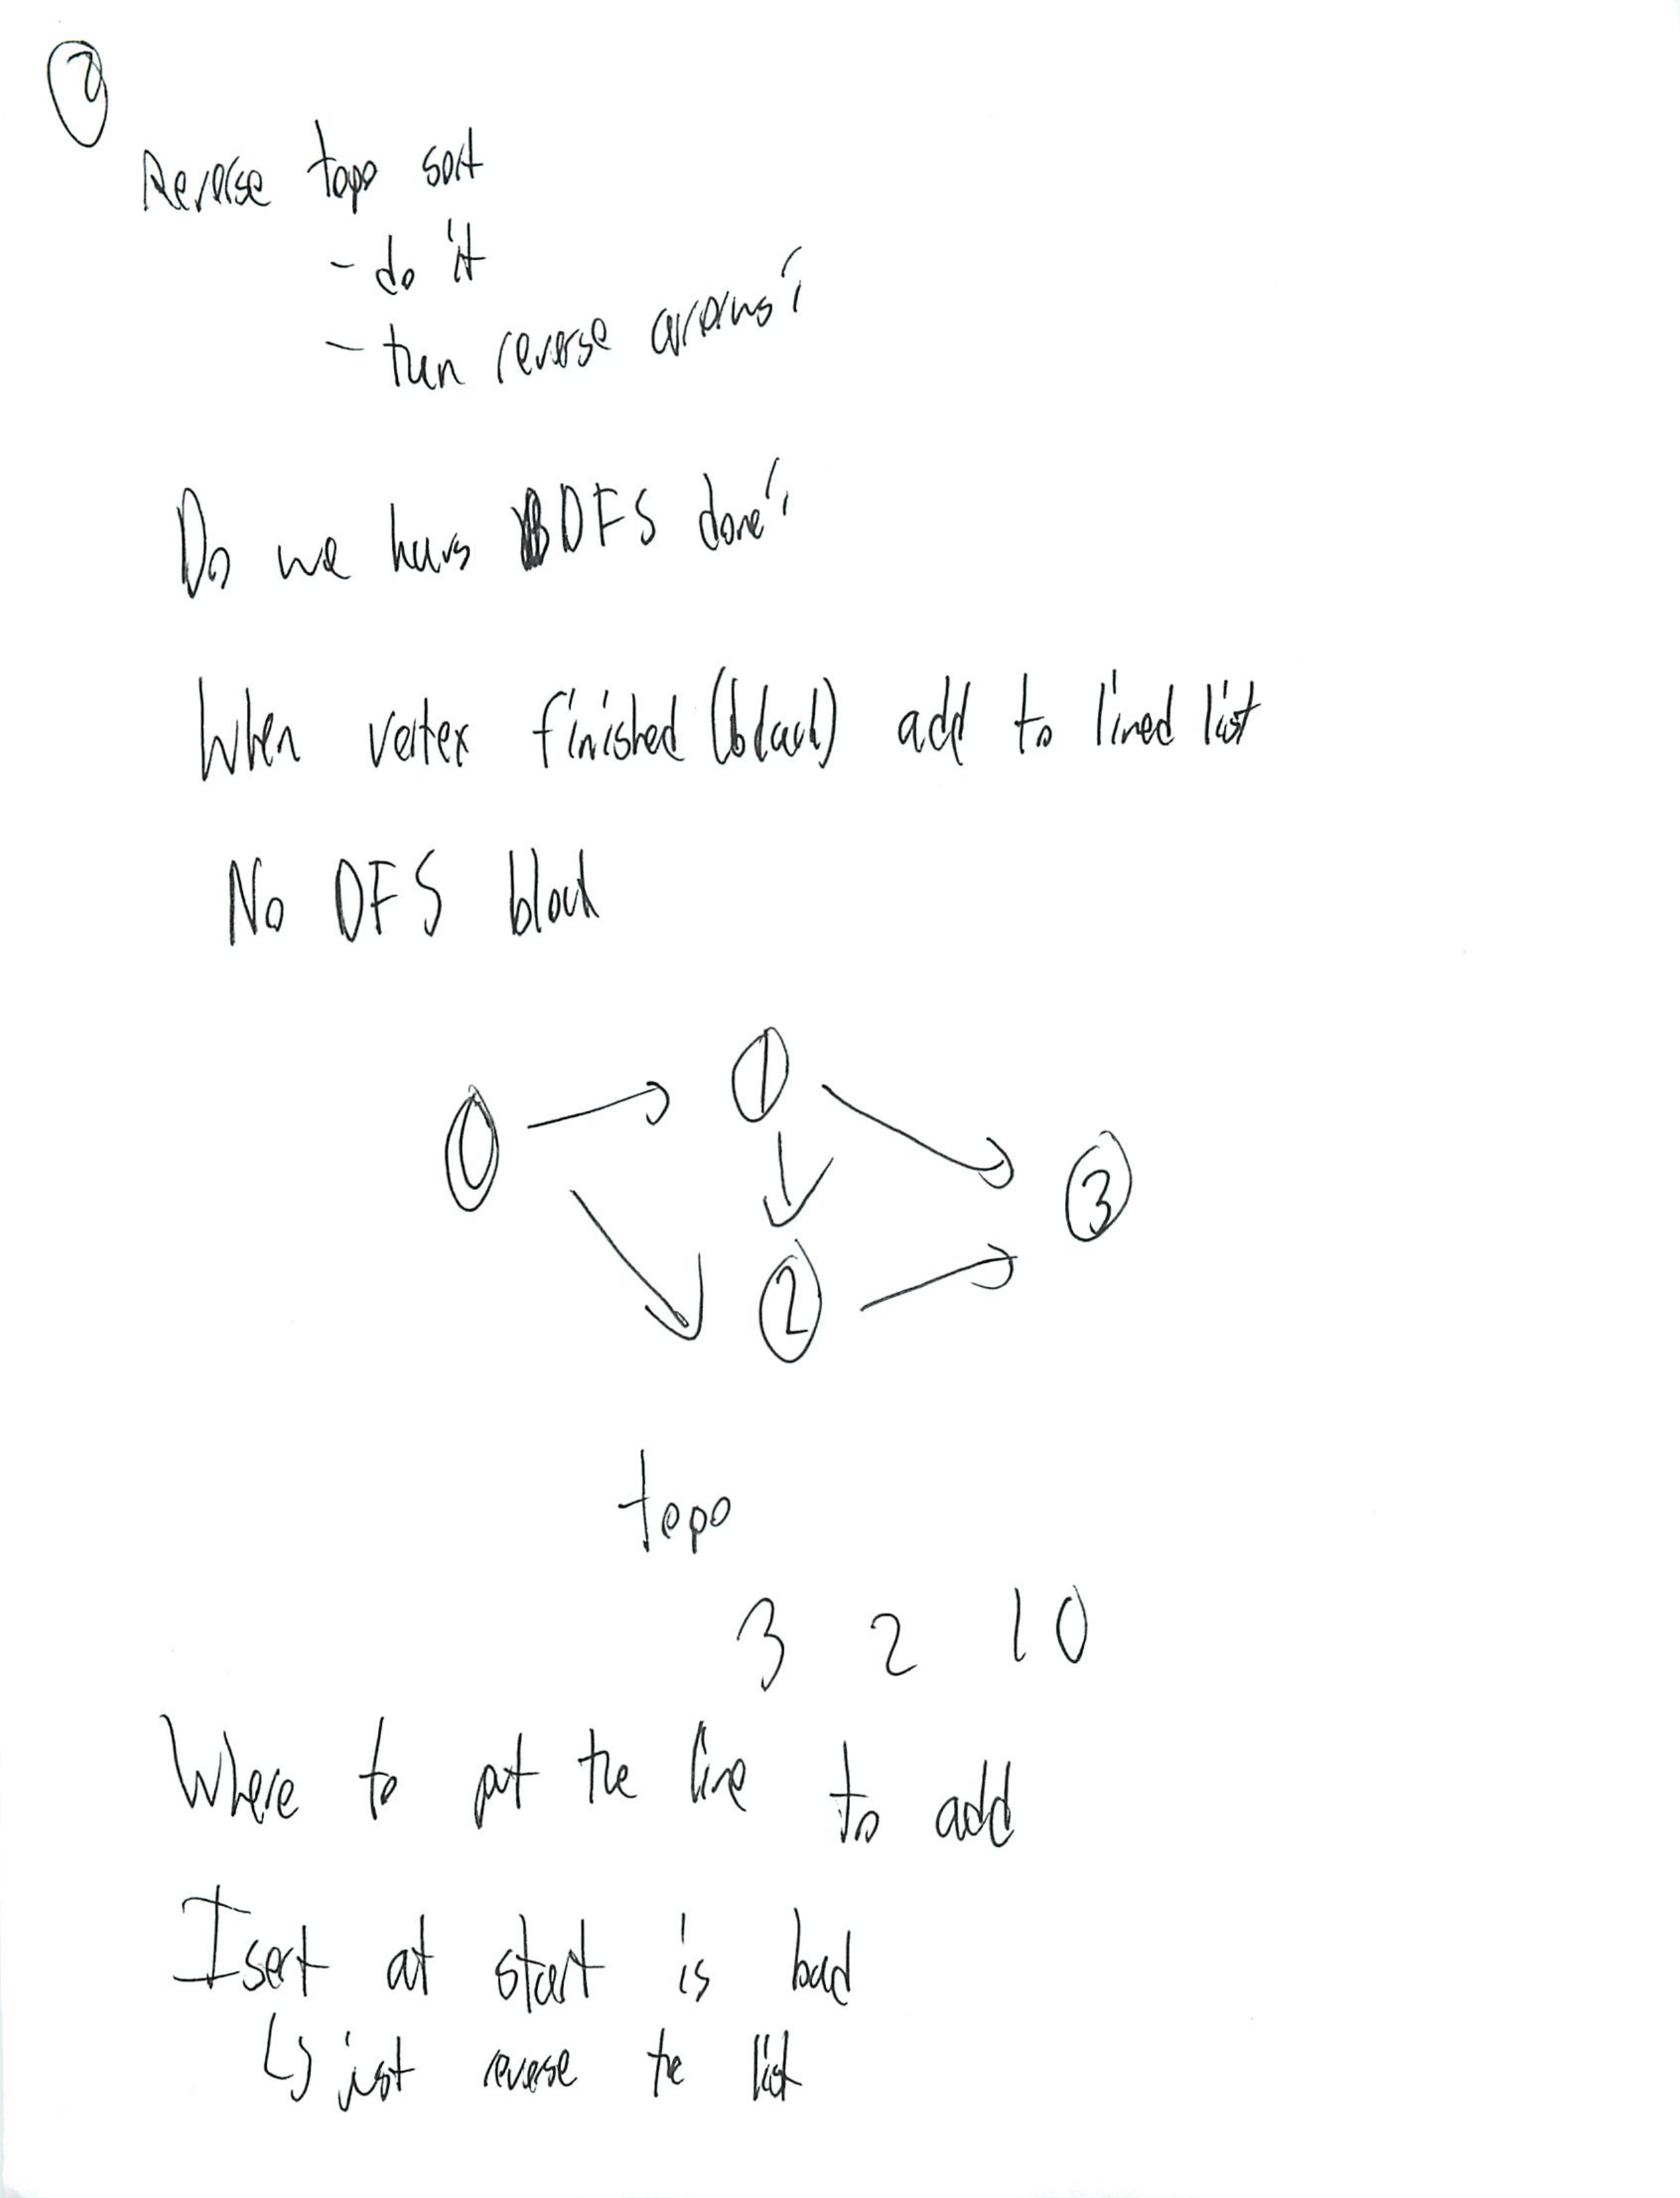 2
Reverse topo sort
- do it
- then reverse arrows?
Do we have DFS done?
When vertex finished (black) add to lined list
No DFS black
0 1
3
2
topo
3 2 1 0
Where to put the line to add
Isert at start is bad
↳ just reverse the list